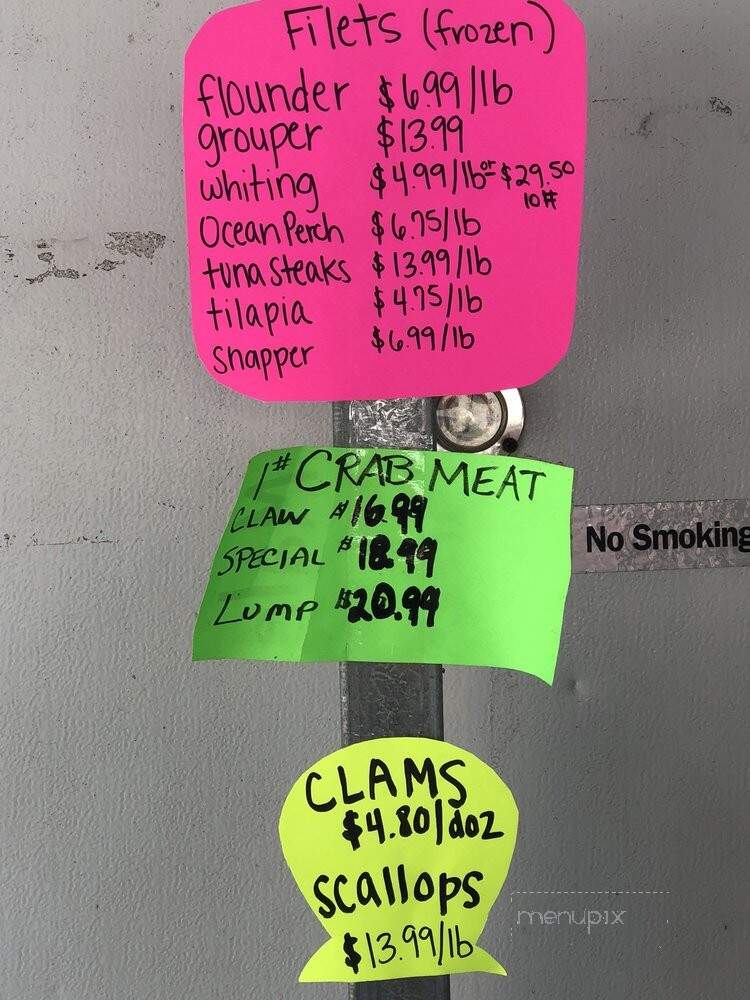 Filets (frozen)
flounder $6.99/lb
grouper $13.99
whiting $4.99/lb or $29.50
10#
Ocean Perch $6.75/lb
tuna steaks $13.99/lb
tilapia $4.75/lb
snapper $6.99/lb
1# CRAB MEAT
CLAW $16.99
SPECIAL $18.99
LUMP $20.99
No Smoking
CLAMS
$4.80/doz
scallops
$13.99/lb
menupix